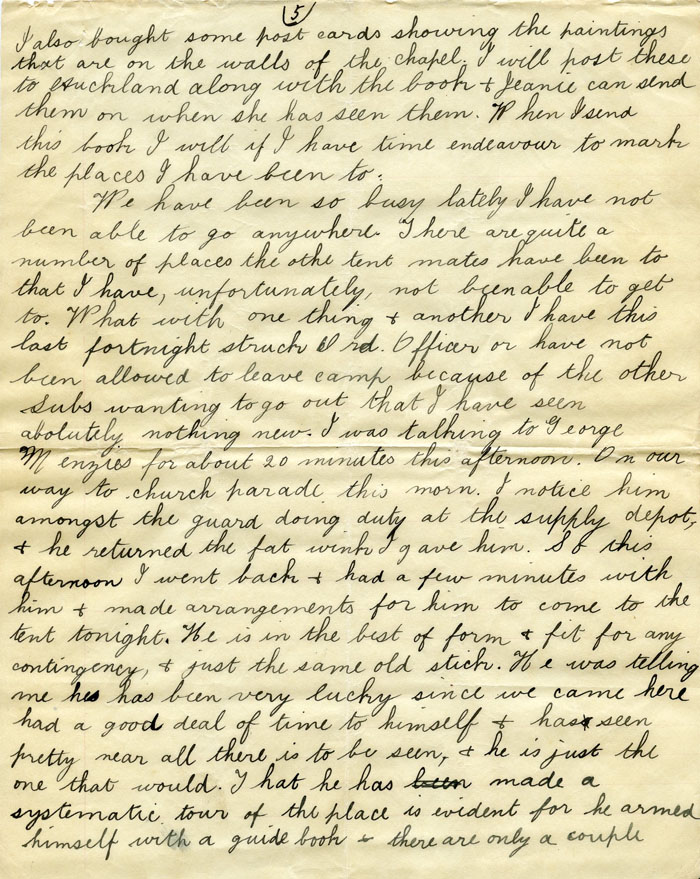 5
I also bought some post cards showing the paintings
that are on the walls of the chapel. I will post these
to Auckland along with the book & Jeanie can send
them on when she has seen them. When I send
this book I will if I have time endeavour to mark
the places I have been to.
We have been so busy lately I have not
been able to go anywhere. There are quite a
number of places the othe tent mates have been to
that I have, unfortunately, not been able to get
to. What with one thing & another I have this
last fortnight struck Ord. Officer or have not
been allowed to leave camp because of the other
Subs wanting to go out that I have seen
abolutely nothing new. I was talking to George
Menzies for about 20 minutes this afternoon. On our
way to church parade this morn. I notice him
amongst the guard doing duty at the supply depot,
& he returned the fat wink I gave him. So this
afternoon I went back & had a few minutes with
him & made arrangements for him to come to the
tent tonight. He is in the best of form & fit for any
contingency, & just the same old stick. He was telling
me has been very lucky since we came here
had a good deal of time to himself & has seen
pretty near all there is to be seen, & he is just the
one that would. That he has been made a
systematic tour of the place is evident for he armed
himself with a guide book & there are only a couple